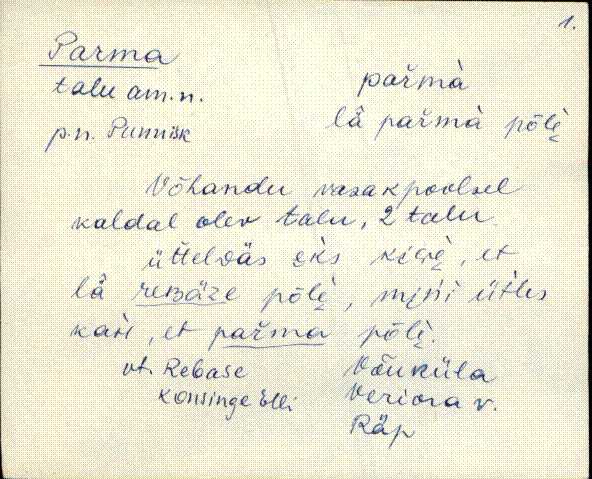 1.
Parma
talu am.n.
p.n. Punnisk
pařmà
lǟ pařmà põlè̬
Võhandu vasakpoolsel
kaldal olev talu, 2 talu
üttelväs
et
lǟ põlè̬, ütles
et pařma põlè̬.
vt. Rebase
Konsinge Elli
Võuküla
Veriora v.
Räp